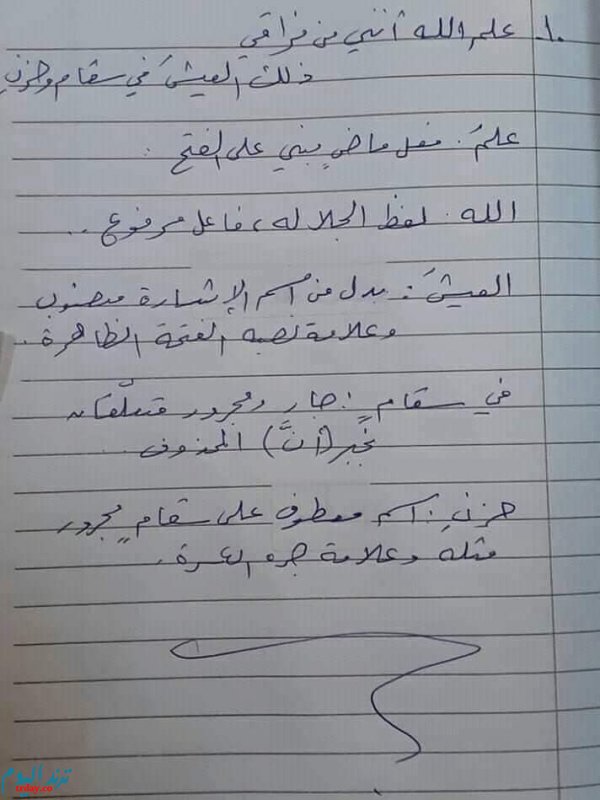 ١. علم الله أنني من فراقي
ذلك العيشَ في سقام وحزنِ
علمَ: فعل ماضٍ مبني على الفتح.
الله: لفظ الجلاله، فاعل مرفوع..
العيشَ: بدل من اسم الإشارة منصوب
وعلامة نصبه الفتحة الظاهرة.
في سقامٍ: جار ومجرور متعلّقان
بخبر (أنَّ) المحذوف.
حزنِ: اسم معطوف على سقامٍ مجرور
مثله وعلامة جره الكسرة.
ترند اليوم
trday.co